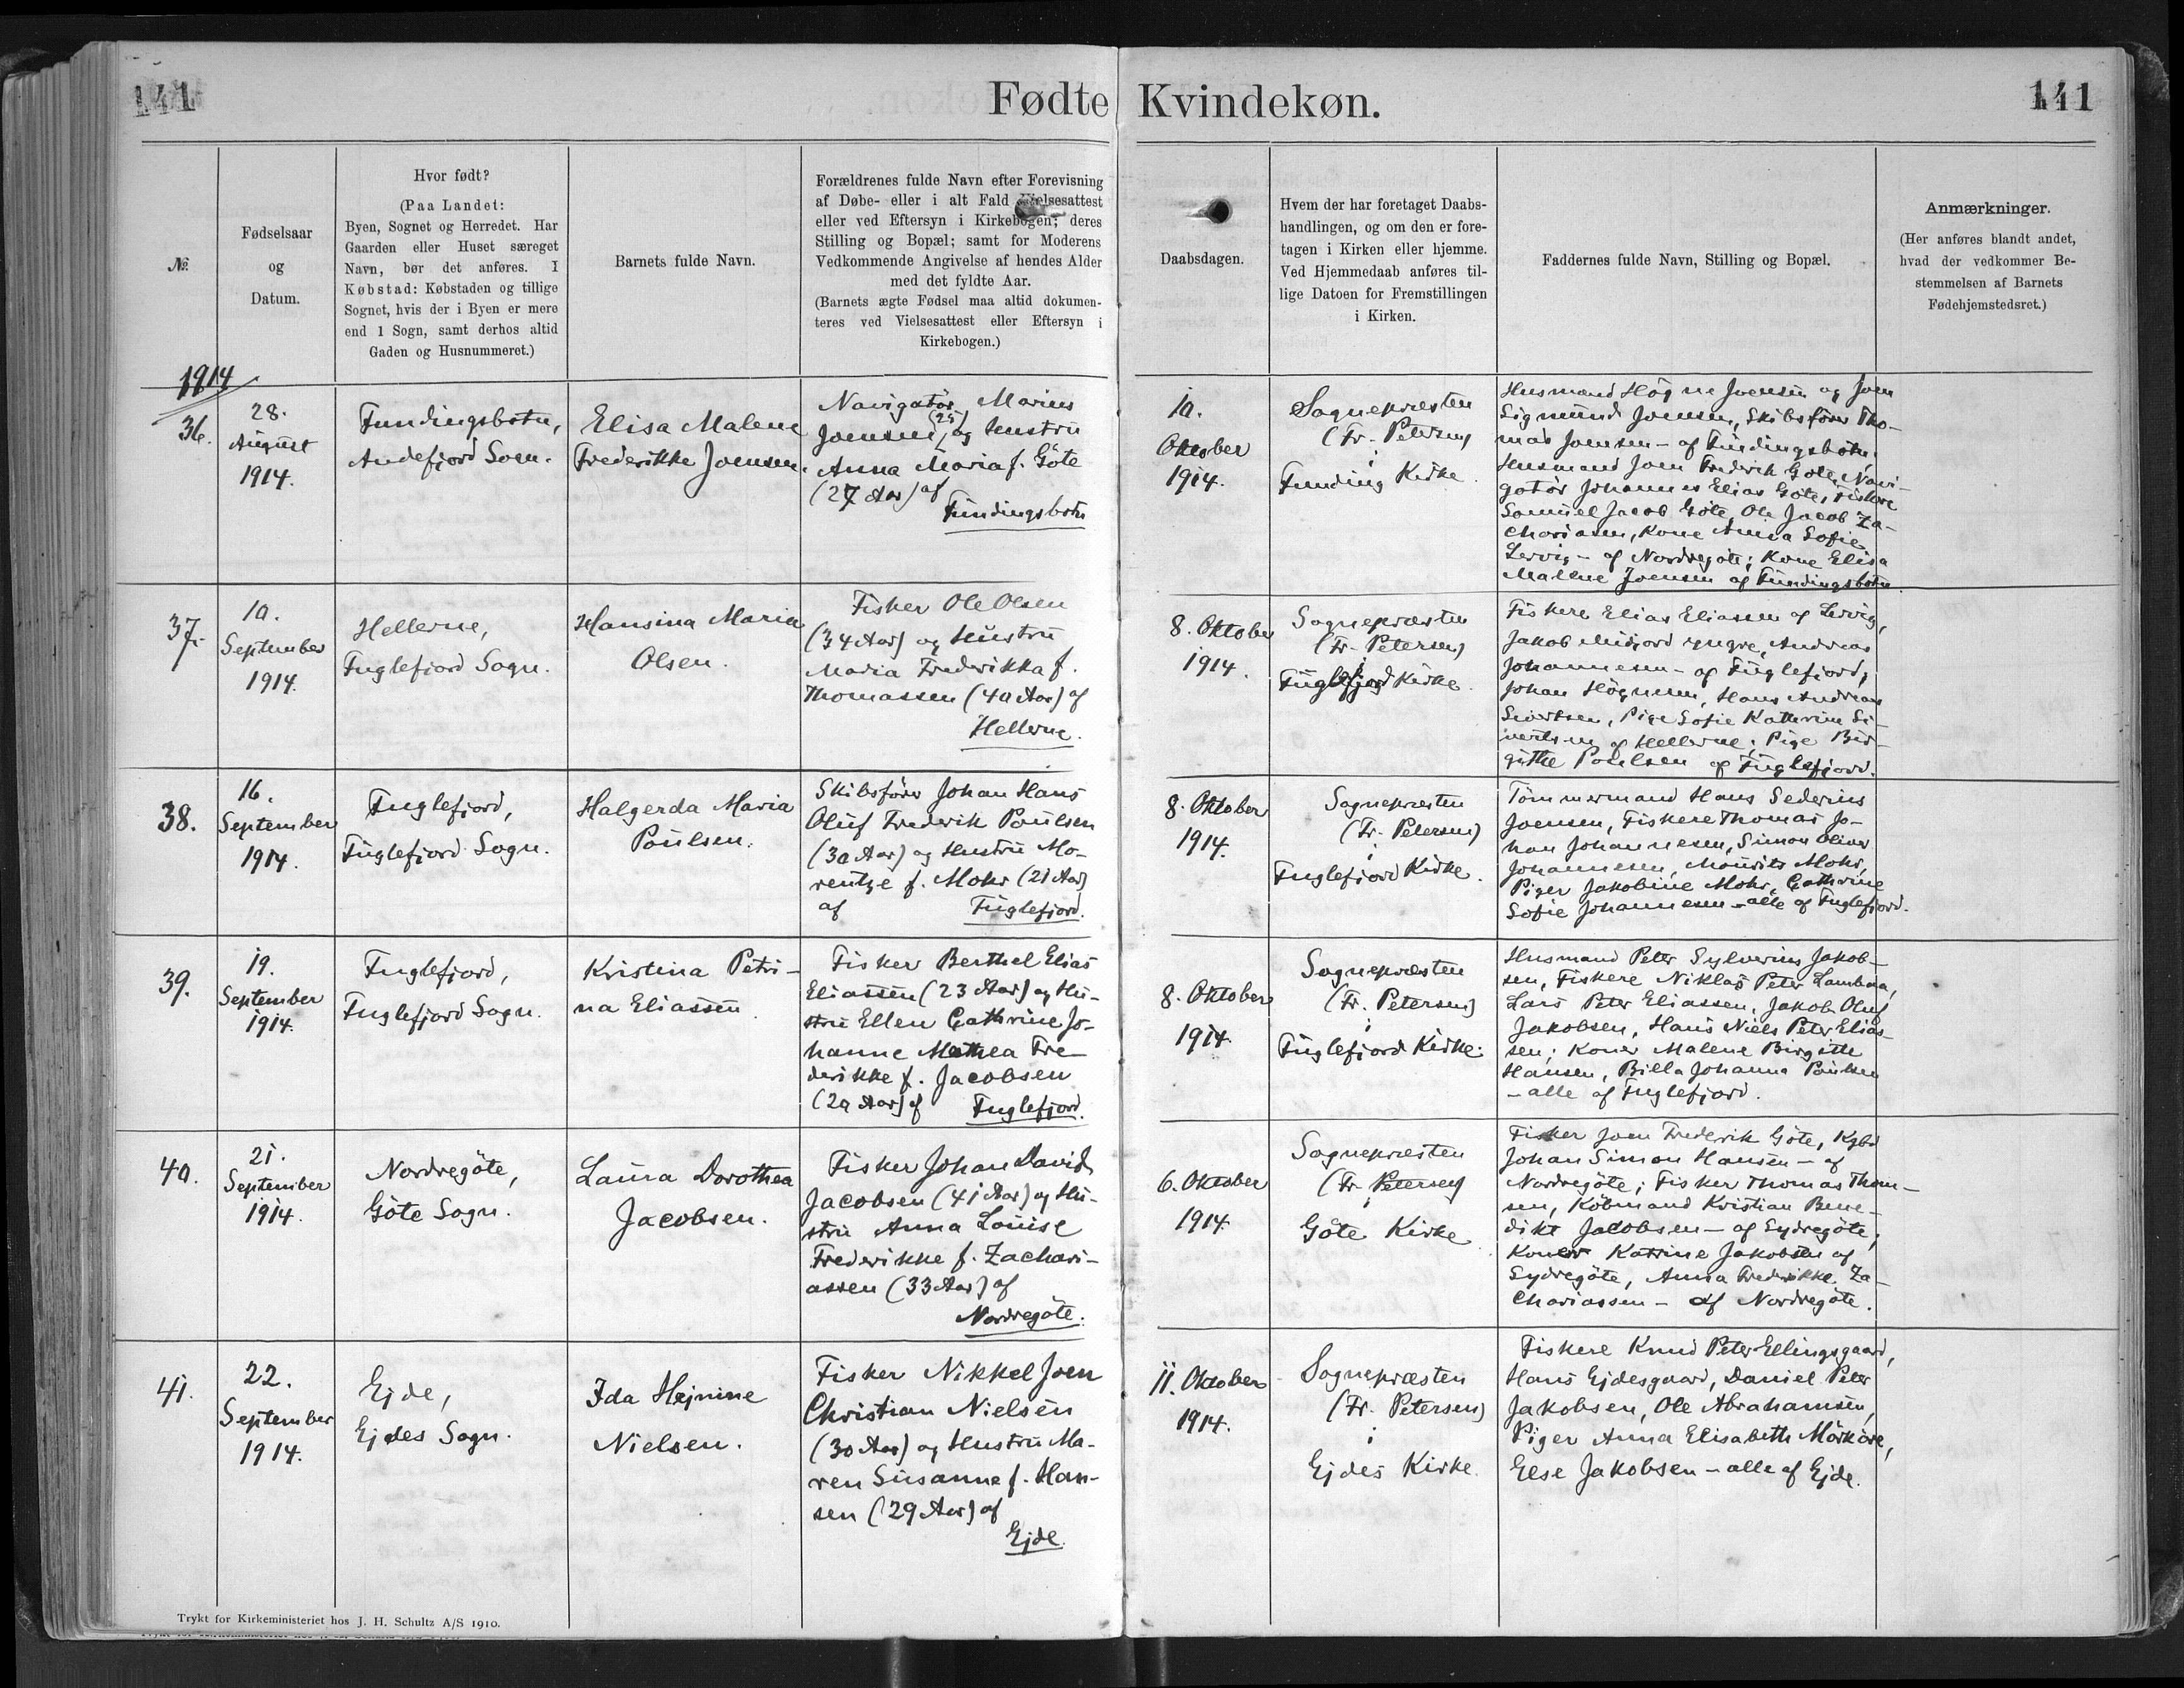 141
Fødte Kvindekøn.
141
№
Fødselsaar
og
Datum.
Hvor født?
(Paa Landet:
Byen, Sognet og Herredet. Har
Gaarden eller Huset særeget
Navn, bør det anføres. I
Købstad: Købstaden og tillige
Sognet, hvis der i Byen er mere
end 1 Sogn, samt derhos altid
Gaden og Husnummeret.)
Barnets fulde Navn.
Forældrenes fulde Navn efter Forevisning
af Døbe- eller i alt Fald Vielsesattest
eller ved Eftersyn i Kirkebogen; deres
Stilling og Bopæl; samt for Moderens
Vedkommende Angivelse af hendes Alder
med det fyldte Aar.
(Barnets ægte Fødsel maa altid dokumen-
teres ved Vielsesattest eller Eftersyn i
Kirkebogen.)
Daabsdagen.
Hvem der har foretaget Daabs-
handlingen, og om den er fore-
tagen i Kirken eller hjemme.
Ved Hjemmedaab anføres til-
lige Datoen for Fremstillingen
i Kirken.
Faddernes fulde Navn, Stilling og Bopæl.
Anmærkninger.
(Her anføres blandt andet,
hvad der vedkommer Be-
stemmelsen af Barnets
Fødehjemstedsret.)
1914
36.
28.
August
1914.
Fundingsbotn,
Andefjord Sogn.
Elisa Malene
Frederikke Joensen.
Navigatör Marius
Joensen (25), og Hustru
Anna Maria f. Göte
(27 Aar) af
Fundingsbotn
10.
Oktober
1914.
Sognepræsten
(Fr. Petersen)
i
Funding Kirke.
Husmand Högne Joensen og Joen
Sigmund Joensen, Skibsförer Tho-
mas Joensen - af Fundingsbotn;
Husmand Joen Frederik Göte, Navi-
gatör Johannes Elias Göte, Fiskere
Samuel Jacob Göte, Ole Jacob Za-
chariasen, Kone Anna Sofie
Lervig - af Nordregöte; Kone Elisa
Malene Joensen af Fundingsbotn.
37.
10.
September
1914.
Hellerne,
Fuglefjord Sogn.
Hansina Maria
Olsen.
Fisker Ole Olsen
(34 Aar) og Hustru
Maria Frederikka f.
Thomassen (40 Aar) af
Hellerne.
8. Oktober
1914.
Sognepræsten
(Fr. Petersen)
i
Fuglefjord Kirke.
Fiskere Elias Eliasen af Lervig,
Jakob Midjord yngre, Andreas
Johannesen - af Fuglefjord;
Johan Högnesen, Hans Andreas
Sivertsen, Pige Sofie Kathrine Si-
vertsen af Hellerne; Pige Bir-
githe Poulsen af Fuglefjord.
38.
16.
September
1914.
Fuglefjord,
Fuglefjord Sogn.
Halgerda Maria
Poulsen.
Skibsförer Johan Hans
Oluf Frederik Poulsen
(30 Aar) og Hustru Mo-
rentze f. Mohr (21 Aar)
af Fuglefjord.
8. Oktober
1914.
Sognepræsten
(Fr. Petersen)
i
Fuglefjord Kirke.
Tömmermand Hans Sederius
Joensen, Fiskere Thomas Jo-
han Johannesen, Simon Oliver
Johannesen, Mourits Mohr,
Piger Jakobine Mohr, Cathrine
Sofie Johannesen - alle af Fuglefjord.
39.
19.
September
1914.
Fuglefjord,
Fuglefjord Sogn.
Kristina Petri-
na Eliassen.
Fisker Berthel Elias
Eliassen (23 Aar) og Hu-
stru Ellen Cathrine Jo-
hanne Mathea Fre-
derikke f. Jacobsen
(20 Aar) af Fuglefjord.
8. Oktober
1914.
Sognepræsten
(Fr. Petersen)
i
Fuglefjord Kirke.
Husmand Peter Sylverius Jakob-
sen, Fiskere Niklas Peter Lambaa,
Lars Peter Eliassen, Jakob Oluf
Jakobsen, Hans Niels Peter Elias-
sen; Koner Malene Birgithe
Hansen, Billa Johanna Poulsen
- alle af Fuglefjord.
40.
21.
September
1914.
Nordregöte,
Göte Sogn.
Laura Dorothea
Jacobsen.
Fisker Johan David
Jacobsen (41 Aar) og Hu-
stru Anna Louise
Frederikke f. Zachari-
assen (33 Aar) af
Nordregöte.
6. Oktober
1914.
Sognepræsten
(Fr. Petersen)
i
Göte Kirke
Fisker Joen Frederik Göte, Kgbd
Johan Simon Hansen - af
Nordregöte; Fisker Thomas Thom-
sen, Köbmand Kristian Bene-
dikt Jacobsen - af Sydregöte;
Koner Katrine Jakobsen af
Sydregöte, Anna Frederikke Za-
chariassen - af Nordregöte.
41.
22.
September
1914.
Ejde,
Ejdes Sogn.
Ida Hejnine
Nielsen.
Fisker Nikkel Joen
Christian Nielsen
(30 Aar) og Hustru Ma-
ren Susanne f. Han-
sen (29 Aar) af
Ejde.
11. Oktober
1914.
Sognepræsten
(Fr. Petersen)
i
Ejdes Kirke.
Fiskere Knud Peter Ellingsgaard,
Hans Ejdesgaard, Daniel Peter
Jakobsen, Ole Abrahamsen,
Piger Anna Elisabeth Mörköre,
Else Jakobsen - alle af Ejde.
Trykt for Kirkeministeriet hos J. H. Schultz A/S 1910.